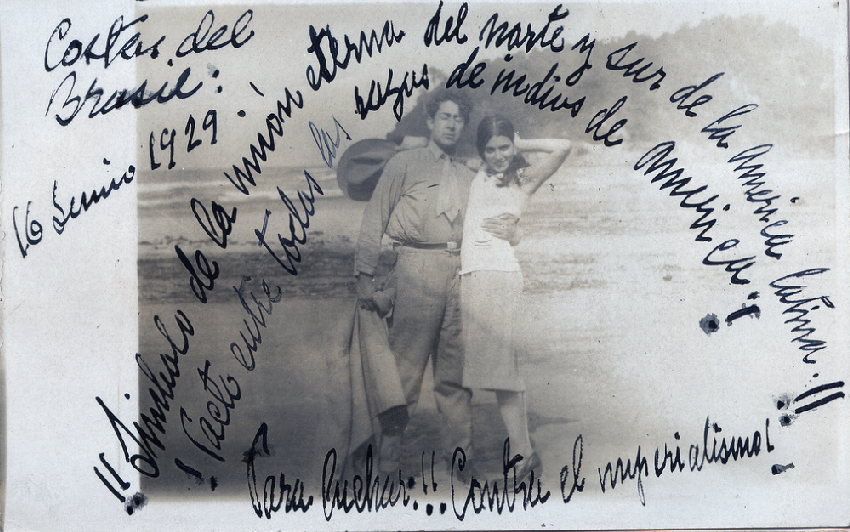 Costas del
Brasil:
16 Junio 1929.
¡¡Simbolo de la unión eterna del norte y sur de la América latina.!!
¡Pacto entre todas las razas de indios de América.!
Para luchar:!! Contra el imperialismo!